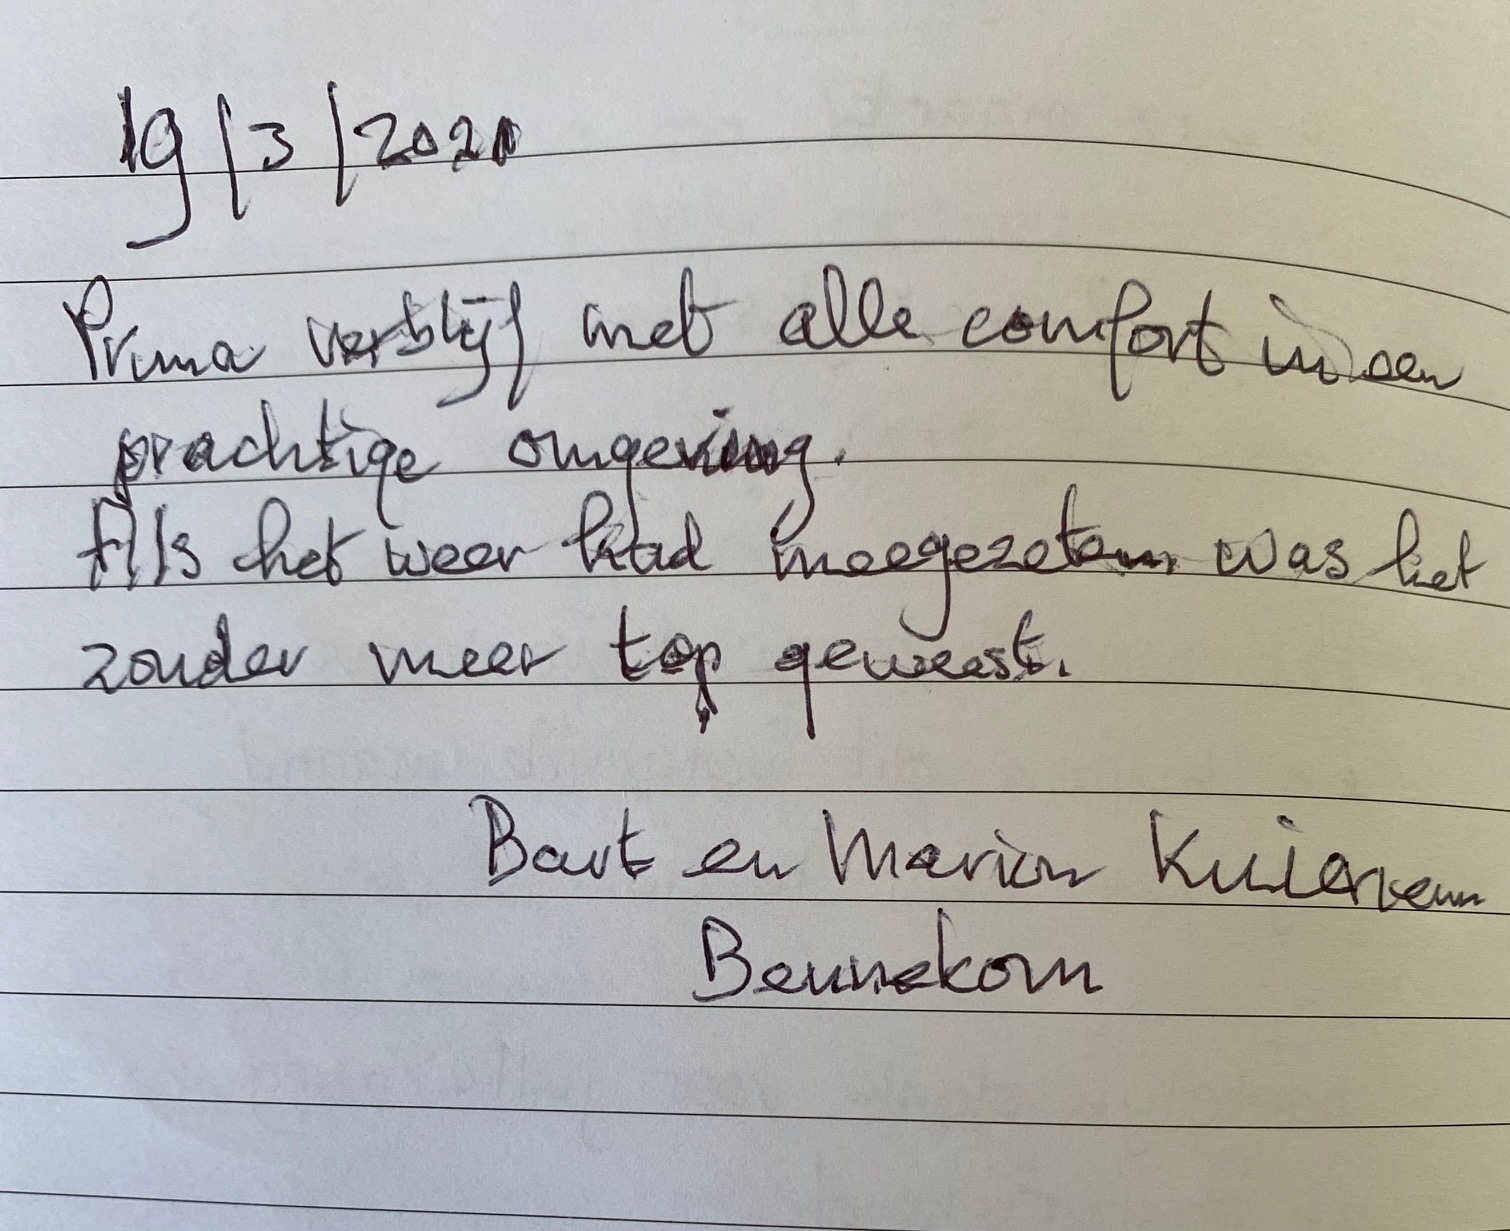 19/3/2021
Prima verblijf met alle comfort in een
prachtige omgeving.
Als het weer had meegezeten was het
zonder meer top geweest.
Bart en Marion
Bennekom